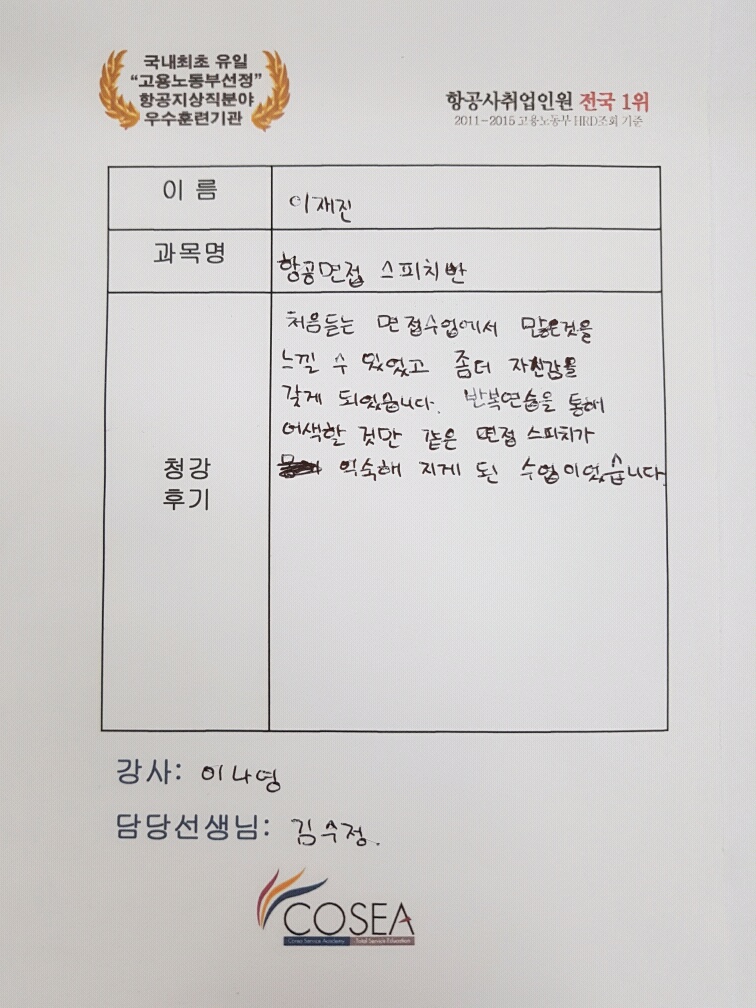 국내최초 유일
“고용노동부선정”
항공지상직분야
우수훈련기관
항공사취업인원 전국 1위
2011-2015 고용노동부 HRD조회 기준
이 름
이재진
과목명
항공면접 스피치반
청강
후기
처음듣는 면접수업에서 많은것을
느낄 수 있었고 좀더 자신감을
갖게 되었습니다. 반복연습을 통해
어색할 것만 같은 면접 스피치가
익숙해 지게 된 수업이었습니다.
강사: 이나영
담당선생님: 김수정.
COSEA
Cosea Service Academy Total Service Education